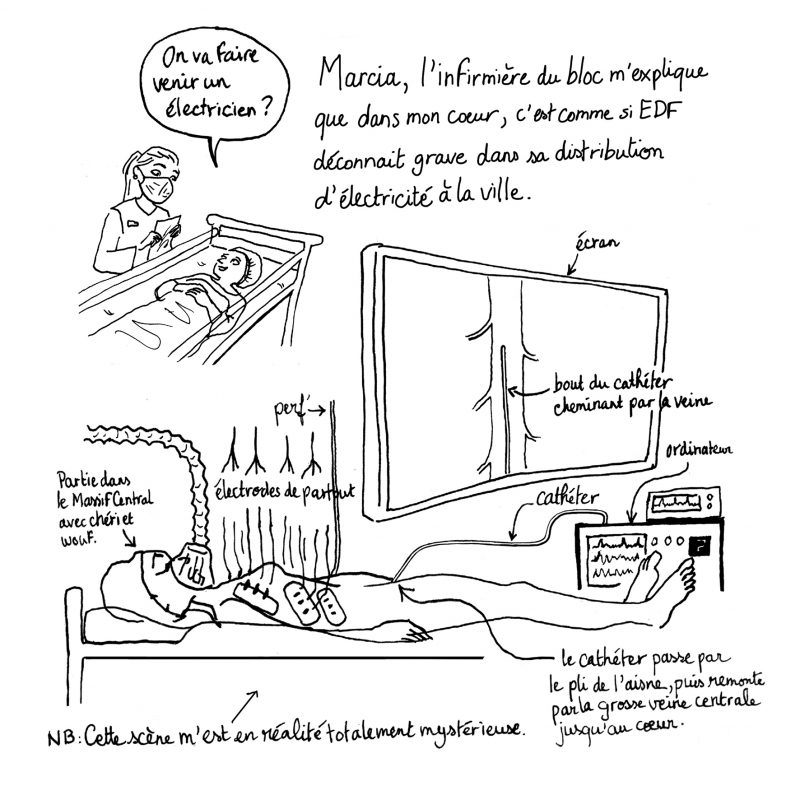 On va faire
venir un
électricien ?
Marcia, l'infirmière du bloc m'explique
que dans mon coeur, c'est comme si EDF
déconnait grave dans sa distribution
d'électricité à la ville.
écran
bout du cathéter
cheminant par la veine
perf'
ordinateur
électrodes de partout
cathéter
Partie dans
le Massif Central
avec chéri et
wouf.
le cathéter passe par
le pli de l'aisne, puis remonte
par la grosse veine centrale
jusqu'au coeur.
NB : Cette scène m'est en réalité totalement mystérieuse.